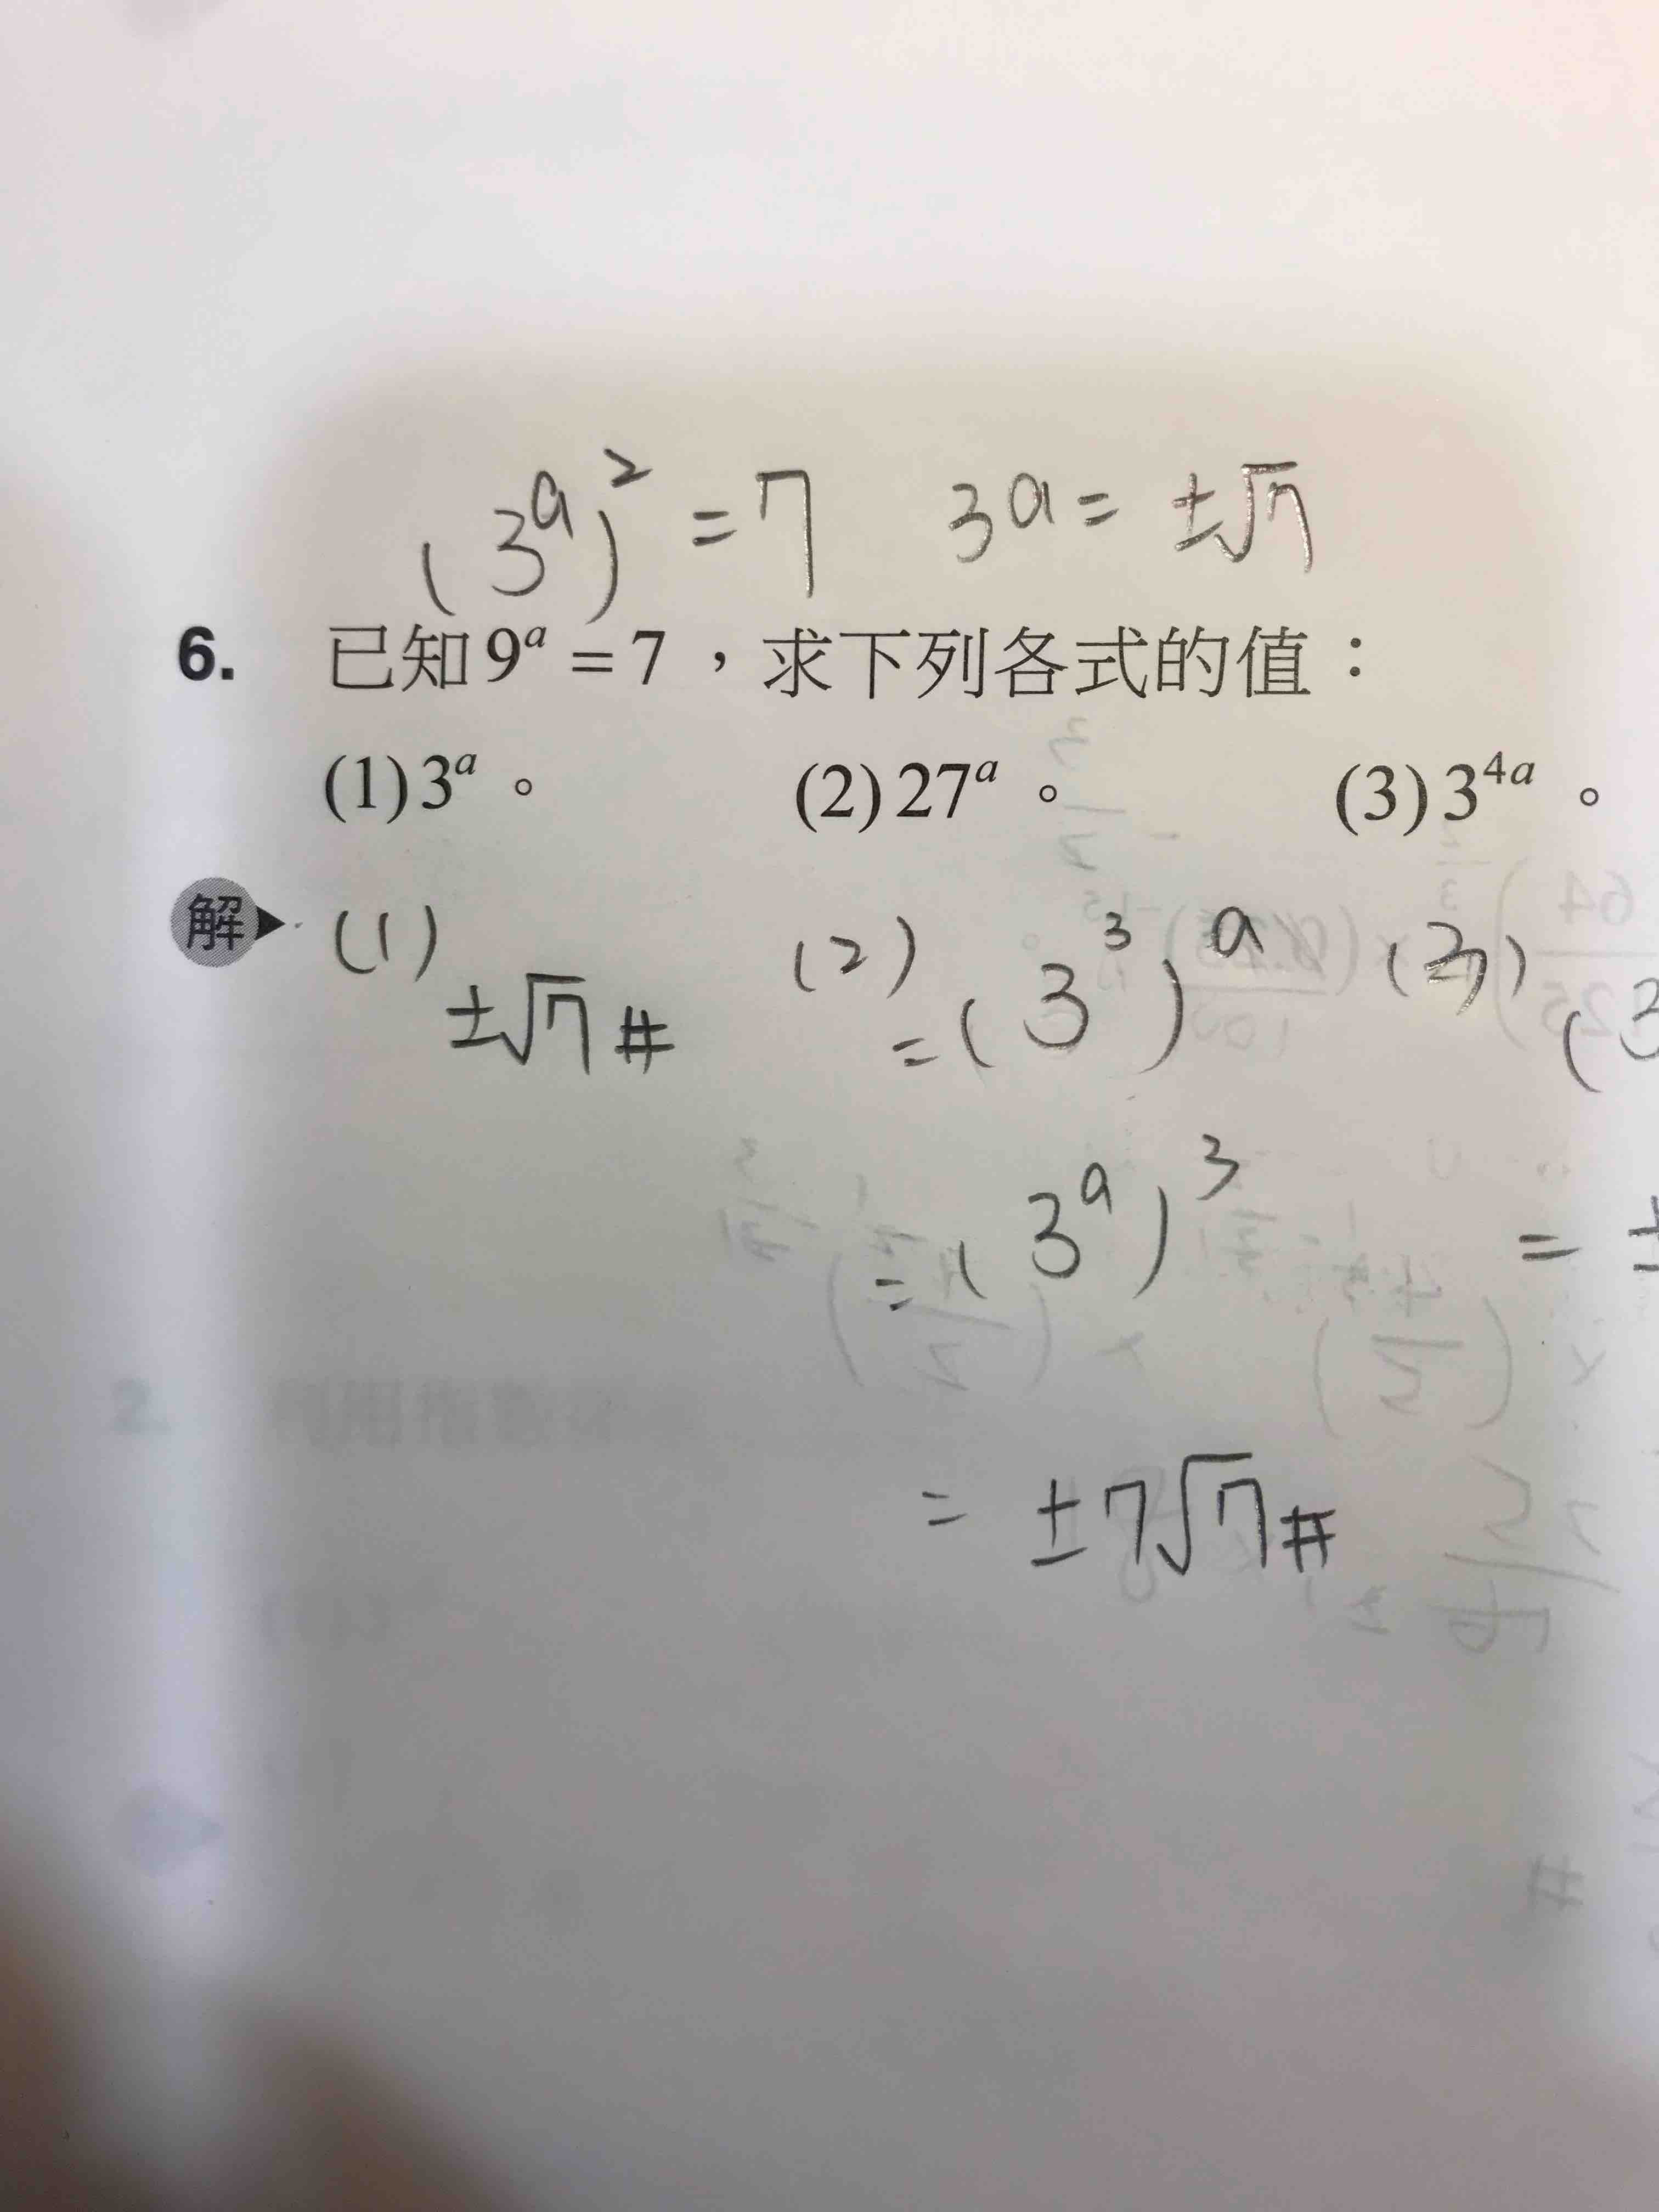 (3^a)^2 = 7 3^a = ±√7
6. 已知 9^a = 7 ，求下列各式的值：
(1) 3^a 。 (2) 27^a 。 (3) 3^{4a} 。
解 (1) (2) (3)
±√7 # = (3^3)^a (3
= (3^a)^3 = ±
= ±7√7 #